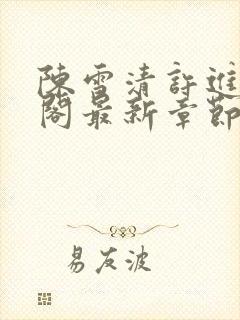 陳雪清許進
閣最新章節
易友波